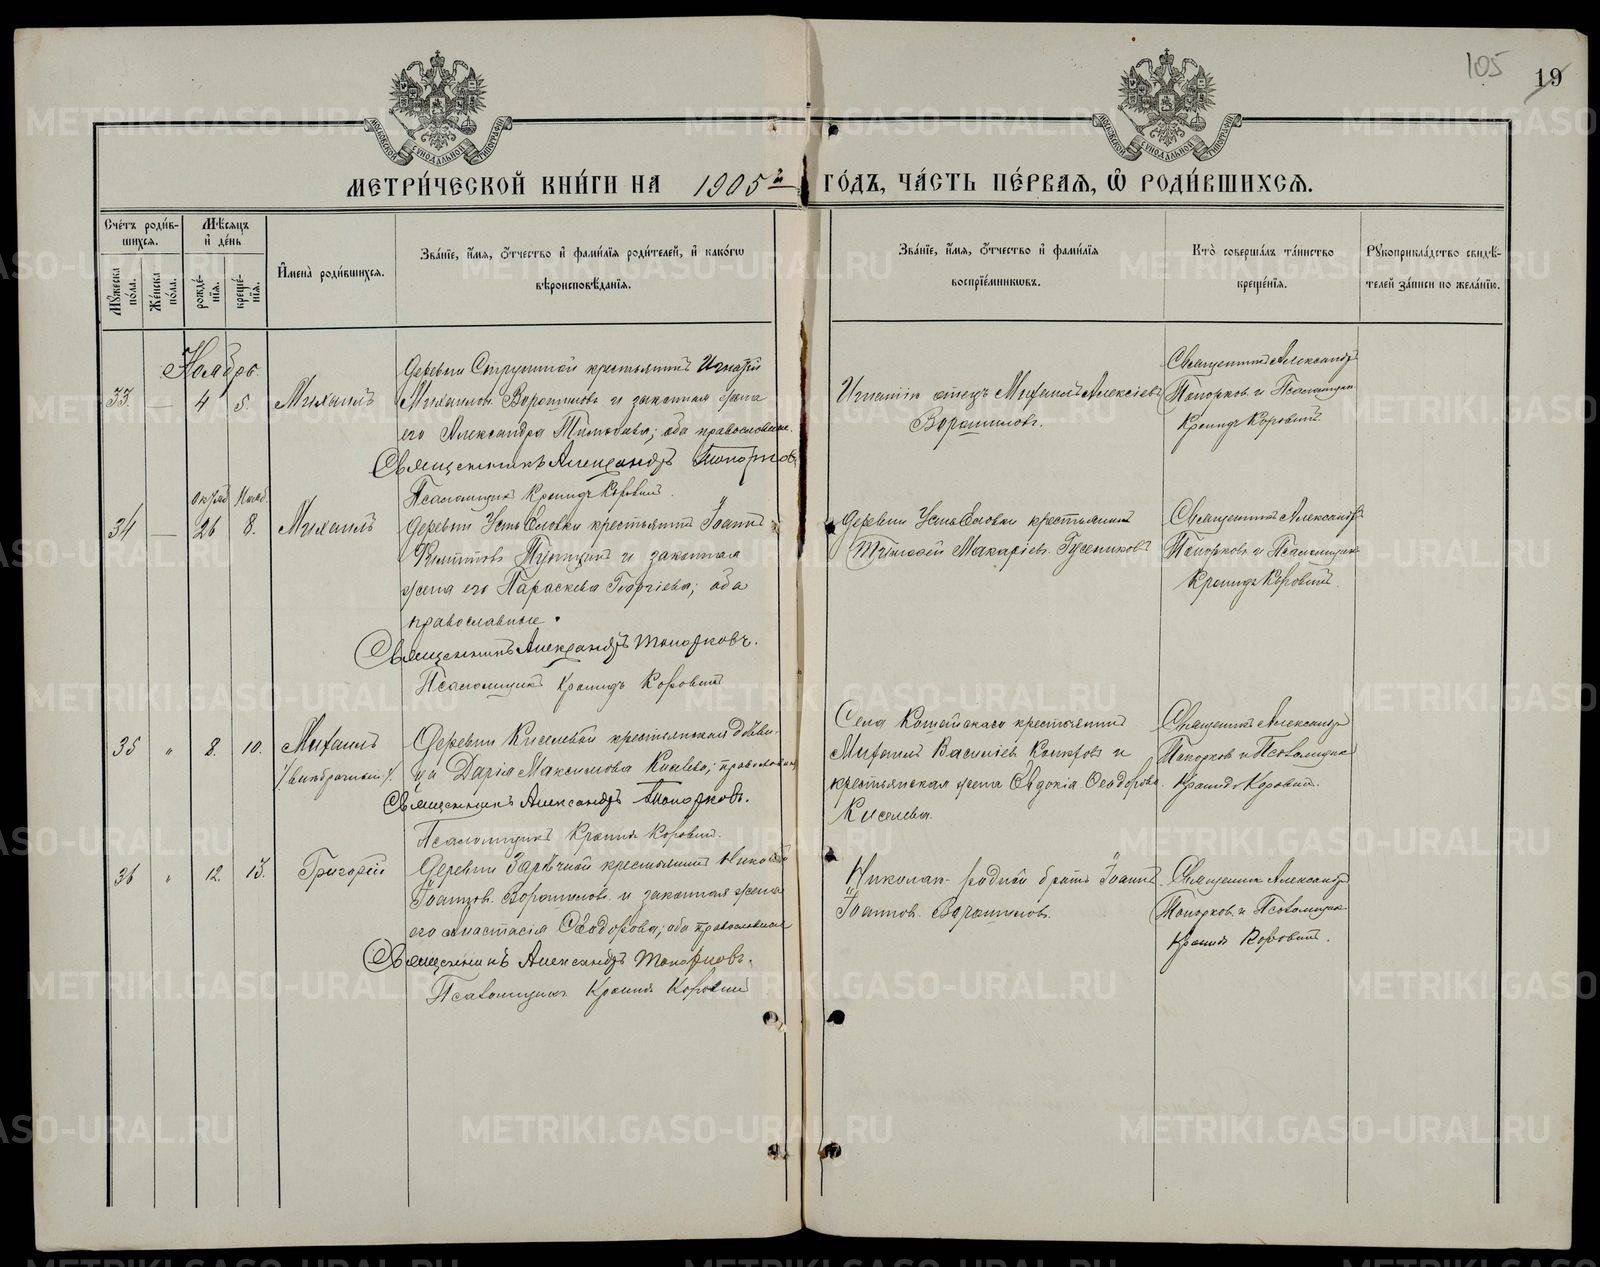 105
19
МОСКОВСКОЙ СѴНОДАЛЬНОЙ ТИПОГРАФІИ
МОСКОВСКОЙ СѴНОДАЛЬНОЙ ТИПОГРАФІИ
МЕТРИ́ЧЕСКОЙ КНИ́ГИ НА 1905й ГО́ДЪ, ЧА́СТЬ ПЕ́РВАѦ, Ѡ РОДИ́ВШИХСѦ.
Сче́тъ роди́вшихсѧ.
Мѣ́сѧцъ и҆ де́нь
Мꙋ́жеска по́ла.
Же́нска по́ла.
рожде́нїѧ.
креще́нїѧ.
И҆мена̀ роди́вшихсѧ.
Зва́нїе, и҆́мѧ, ѻ҆́тчество и҆ фами́лїѧ роди́телей, и҆ како́гѡ
вѣроисповѣ́данїѧ.
Зва́нїе, и҆́мѧ, ѻ҆́тчество и҆ фами́лїѧ
воспрїе́мникѡвъ.
Кто̀ соверша́лъ та́инство
креще́нїѧ.
Рꙋкоприкла́дство свидѣ́телей за́писи по жела́нїю.
Ноябрь.
33. — 4 5. Михаилъ
Деревни крестьянинъ Игнатій
Михаиловъ Ворошиловъ и законная жена
его Александра; оба православные.
Священникъ Александръ Топорковъ
Псаломщикъ Кронидъ Коровинъ.
Игнатія отецъ Михаилъ Алексіевъ
Ворошиловъ.
Священникъ Александръ
Топорковъ и Псаломщикъ
Кронидъ Коровинъ.
Октяб. Нояб.
34 — 26 8. Михаилъ
Деревни Усть Еловки крестьянинъ Іоаннъ
и законная
жена его Параскева Георгіева; оба
православные.
Священникъ Александръ Топорковъ.
Псаломщикъ Кронидъ Коровинъ
Деревни Усть Еловки крестьянинъ
Тимофей Макаріевъ Гусениковъ
Священникъ Александръ
Топорковъ и Псаломщикъ
Кронидъ Коровинъ.
35 „ 8. 10. Михаилъ
/внебрачный/.
Деревни Киселевки крестьянская дѣвица Дарія Максимова; православная
Священникъ Александръ Топорковъ.
Псаломщикъ Кронидъ Коровинъ.
Села крестьянинъ
Михаилъ Василіевъ и
крестьянская жена Евдокія Ѳеодорова
Киселева.
Священникъ Александръ
Топорковъ и Псаломщикъ
Кронидъ Коровинъ.
36 „ 12. 13. Григорій
Деревни Зарѣчной крестьянинъ Николай
Іоанновъ Ворошиловъ и законная жена
его Анастасія Ѳеодорова; оба православные
Священникъ Александръ Топорковъ.
Псаломщикъ Кронидъ Коровинъ
Николая родной братъ Іоаннъ
Іоанновъ Ворошиловъ.
Священникъ Александръ
Топорковъ и Псаломщикъ
Кронидъ Коровинъ.
METRIKI.GASO-URAL.RU